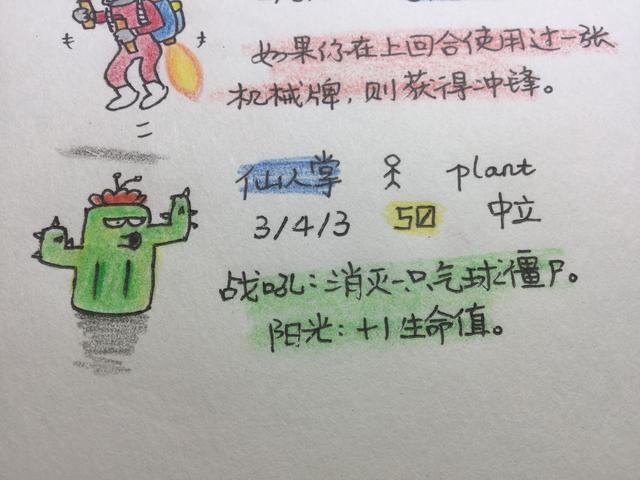 如果你在上回合使用过一张
机械牌，则获得冲锋。
仙人掌 plant
3/4/3 50 中立
战吼：消灭一只气球僵尸。
阳光：+1生命值。